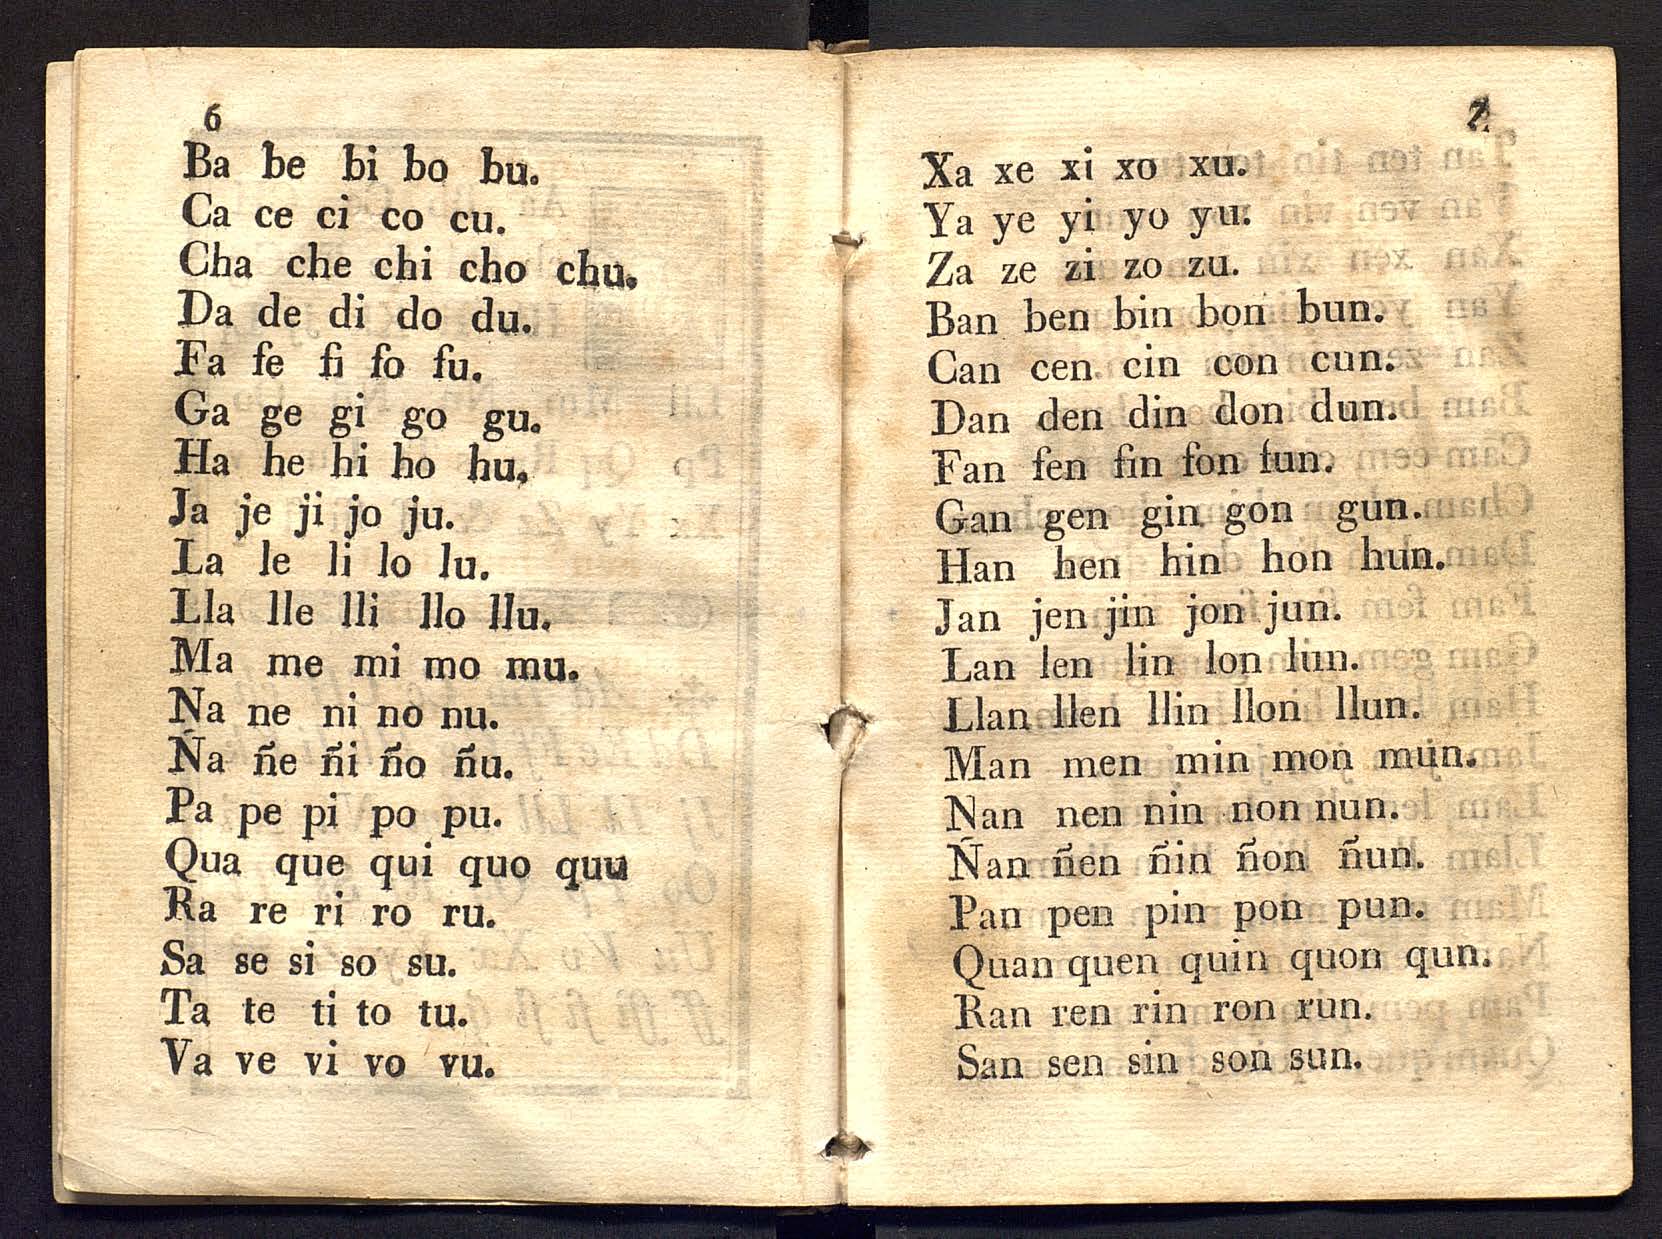 6
Ba be bi bo bu.
Ca ce ci co cu.
Cha che chi cho chu.
Da de di do du.
Fa fe fi fo fu.
Ga ge gi go gu.
Ha he hi ho hu.
Ja je ji jo ju.
La le li lo lu.
Lla lle lli llo llu.
Ma me mi mo mu.
Na ne ni no nu.
Ña ñe ñi ño ñu.
Pa pe pi po pu.
Qua que qui quo quu
Ra re ri ro ru.
Sa se si so su.
Ta te ti to tu.
Va ve vi vo vu.
7.
Xa xe xi xo xu.
Ya ye yi yo yu.
Za ze zi zo zu.
Ban ben bin bon bun.
Can cen cin con cun.
Dan den din don dun.
Fan fen fin fon fun.
Gan gen gin gon gun.
Han hen hin hon hun.
Jan jen jin jon jun.
Lan len lin lon lun.
Llan llen llin llon llun.
Man men min mon mun.
Nan nen nin non nun.
Ñan ñen ñin ñon ñun.
Pan pen pin pon pun.
Quan quen quin quon qun.
Ran ren rin ron run.
San sen sin son sun.